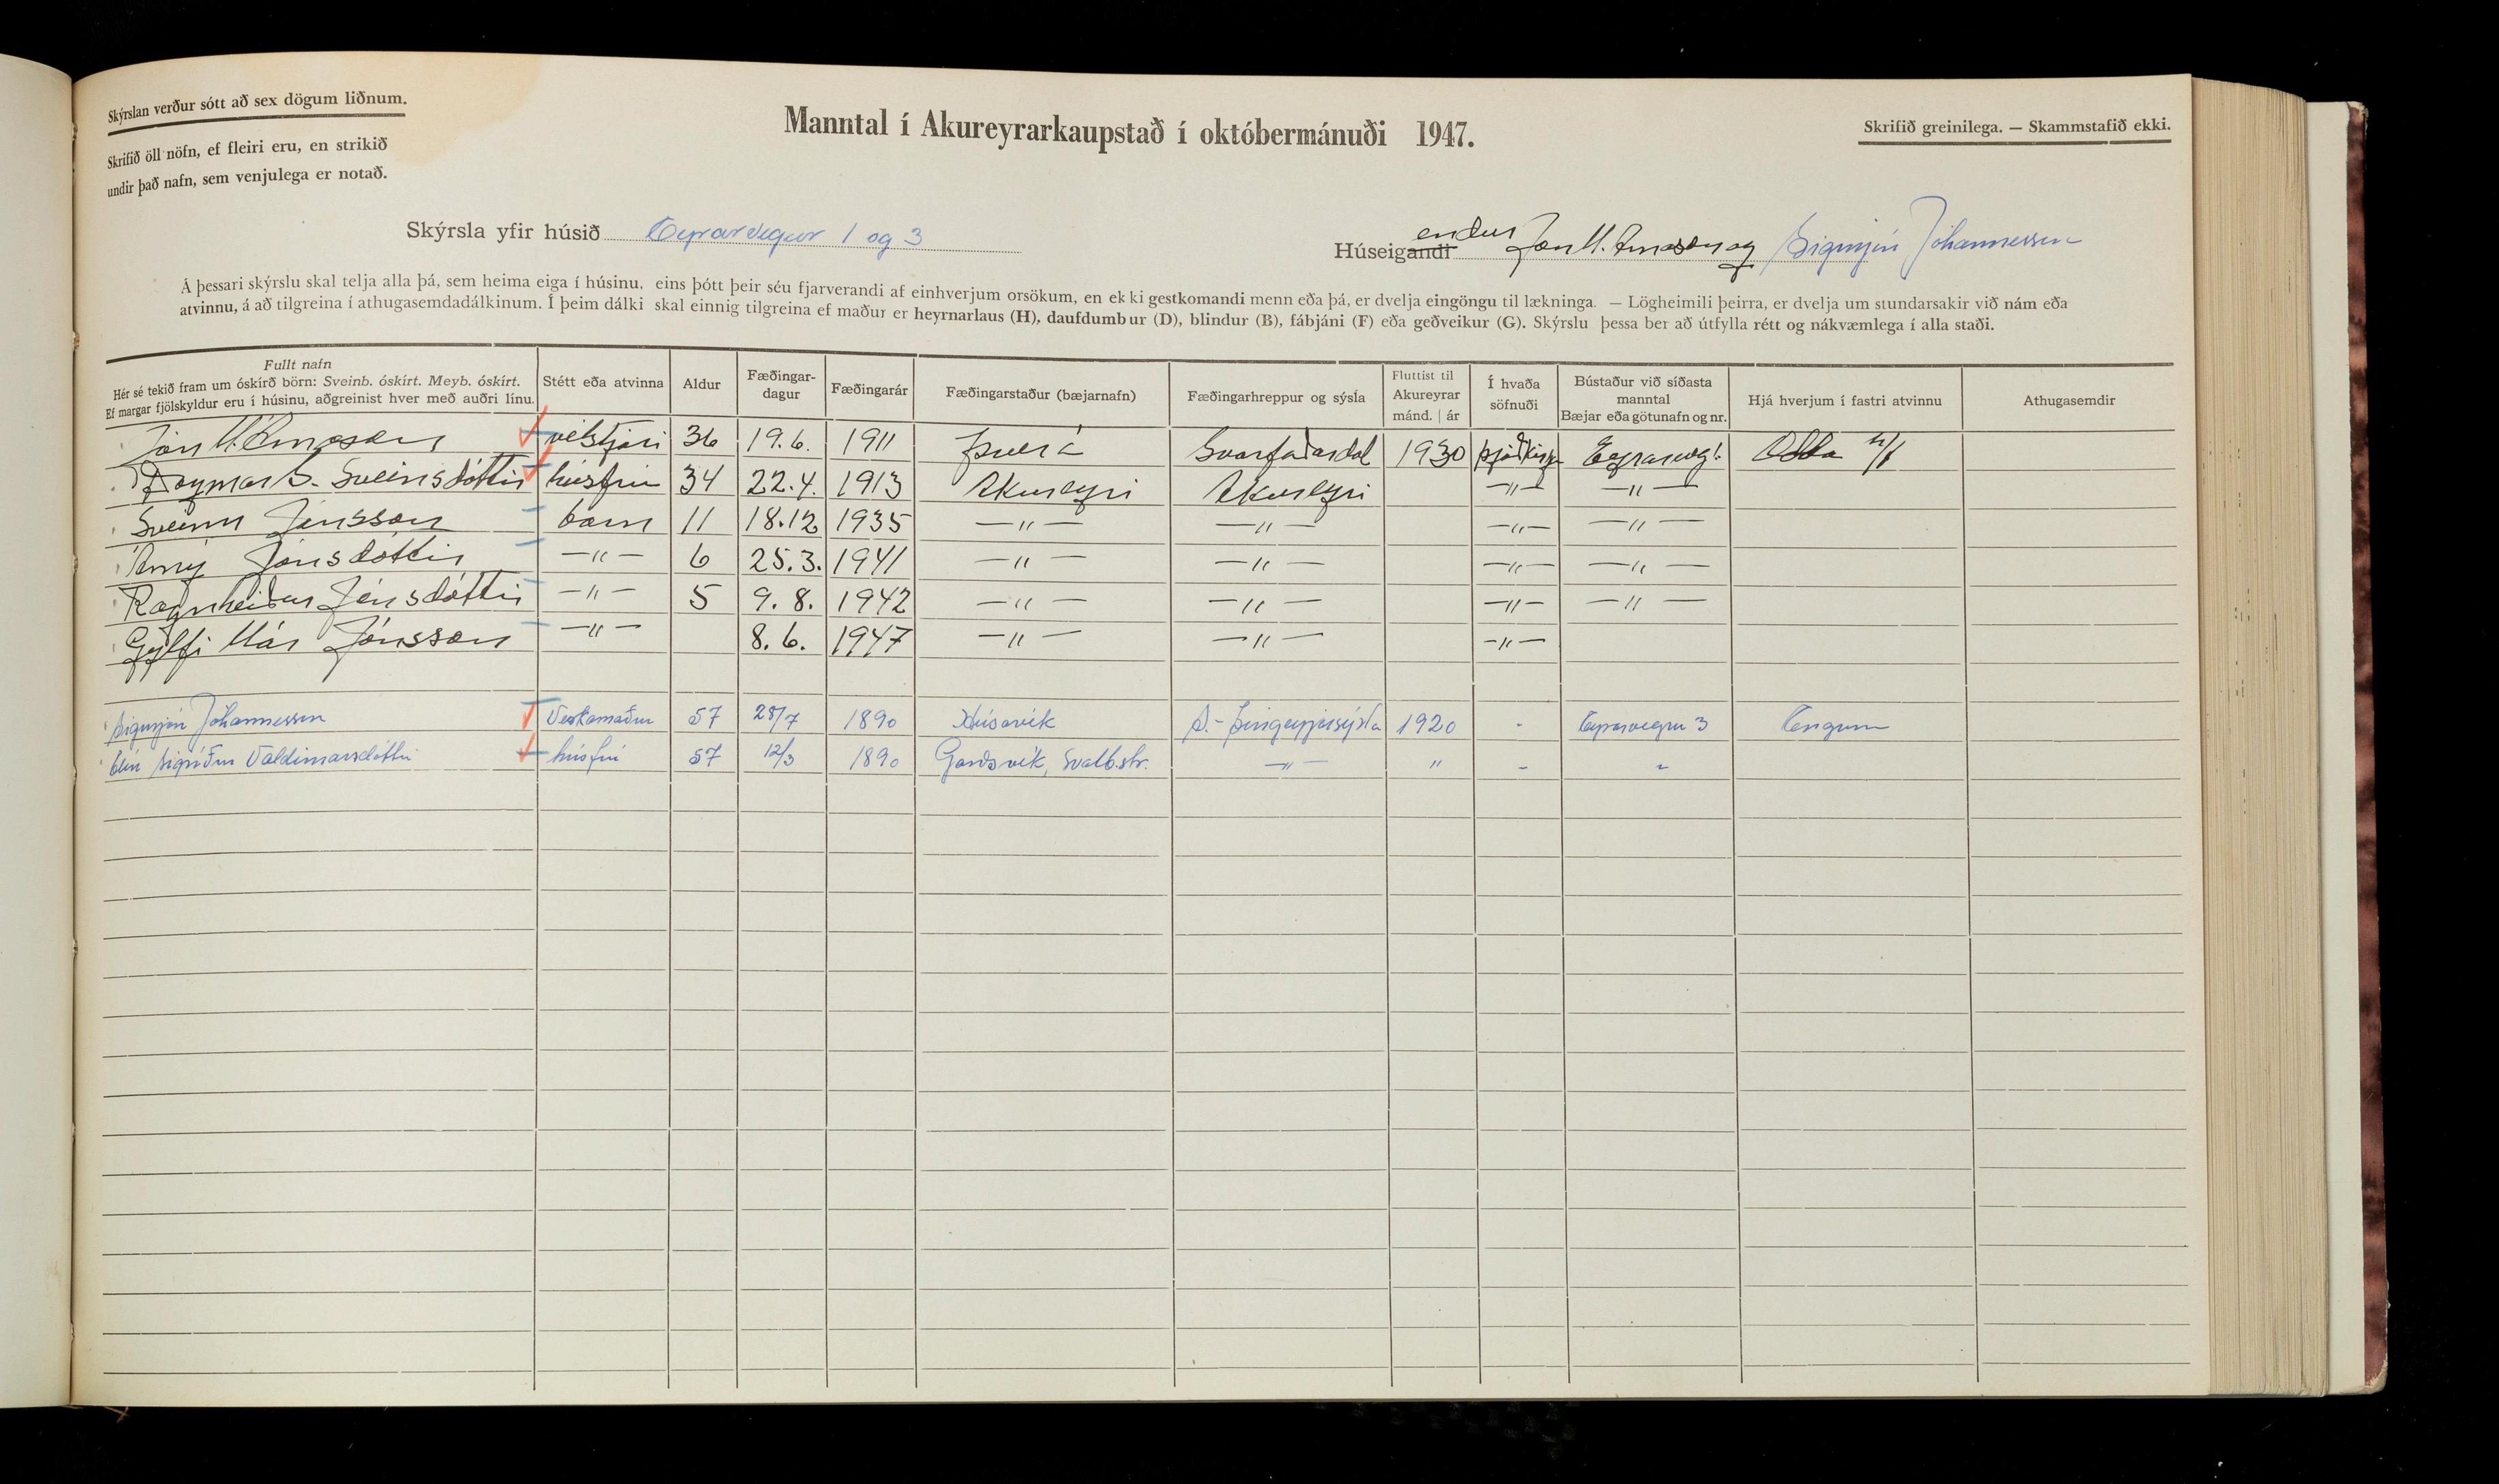 Skýrslan verður sótt að sex dögum liðnum.
Skrifið öll nöfn, ef fleiri eru, en strikið
undir það nafn, sem venjulega er notað.
Manntal í Akureyrarkaupstað í októbermánuði 1947.
Skrifið greinilega. — Skammstafið ekki.
Skýrsla yfir húsið Eyrarvegur 1 og 3
Húseigandi endur Jón M. Árnason og Sigurjón Jóhannesson
Á þessari skýrslu skal telja alla þá, sem heima eiga í húsinu, eins þótt þeir séu fjarverandi af einhverjum orsökum, en ekki gestkomandi menn eða þá, er dvelja eingöngu til lækninga. — Lögheimili þeirra, er dvelja um stundarsakir við nám eða
atvinnu, á að tilgreina í athugasemdadálkinum. Í þeim dálki skal einnig tilgreina ef maður er heyrnarlaus (H), daufdumbur (D), blindur (B), fábjáni (F) eða geðveikur (G). Skýrslu þessa ber að útfylla rétt og nákvæmlega í alla staði.
Fullt nafn Hér sé tekið fram um óskírð börn: Sveinb. óskírt. Meyb. óskírt. Ef margar fjölskyldur eru í húsinu, aðgreinist hver með auðri línu. Stétt eða atvinna Aldur Fæðingar-dagur Fæðingarár Fæðingarstaður (bæjarnafn) Fæðingarhreppur og sýsla Fluttist til Akureyrar mánd. | ár Í hvaða söfnuði Bústaður við síðasta manntal Bæjar eða götunafn og nr. Hjá hverjum í fastri atvinnu Athugasemdir
Jón M. Árnason vélstjóri 36 19.6. 1911 Þverá Svarfaðardal 1930 þjóðkirkju Eyrarveg 1. Odda h/f
Dagmar S. Sveinsdóttir húsfrú 34 22.4. 1913 Akureyri Akureyri —〃— —〃—
Sveinn Jónsson barn 11 18.12 1935 —〃— —〃— —〃— —〃—
Árný Jónsdóttir —〃— 6 25.3. 1941 —〃— —〃— —〃— —〃—
Ragnheiður Jónsdóttir —〃— 5 9.8. 1942 —〃— —〃— —〃— —〃—
Gylfi Már Jónsson —〃— 8.6. 1947 —〃— —〃— —〃—
Sigurjón Jóhannesson Verkamaður 57 28/7 1890 Húsavík S.-Þingeyjarsýsla 1920 - Eyrarvegur 3 Engum
Elín Sigríður Valdimarsdóttir húsfrú 57 12/3 1890 Garðsvík, Svalb.str. —〃— 〃 - -